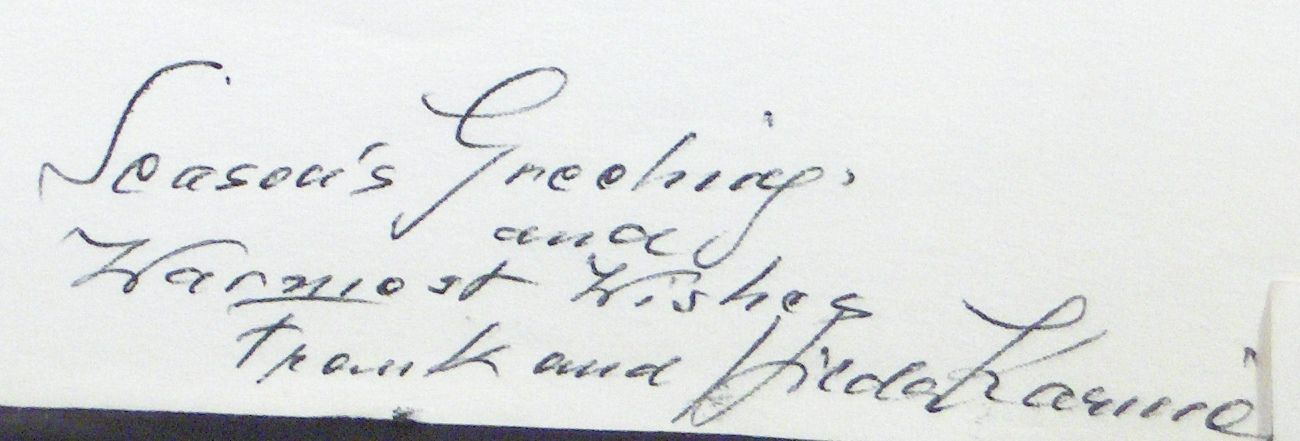 Season's Greetings
and
Warmost Wishes
Frank and Hilda